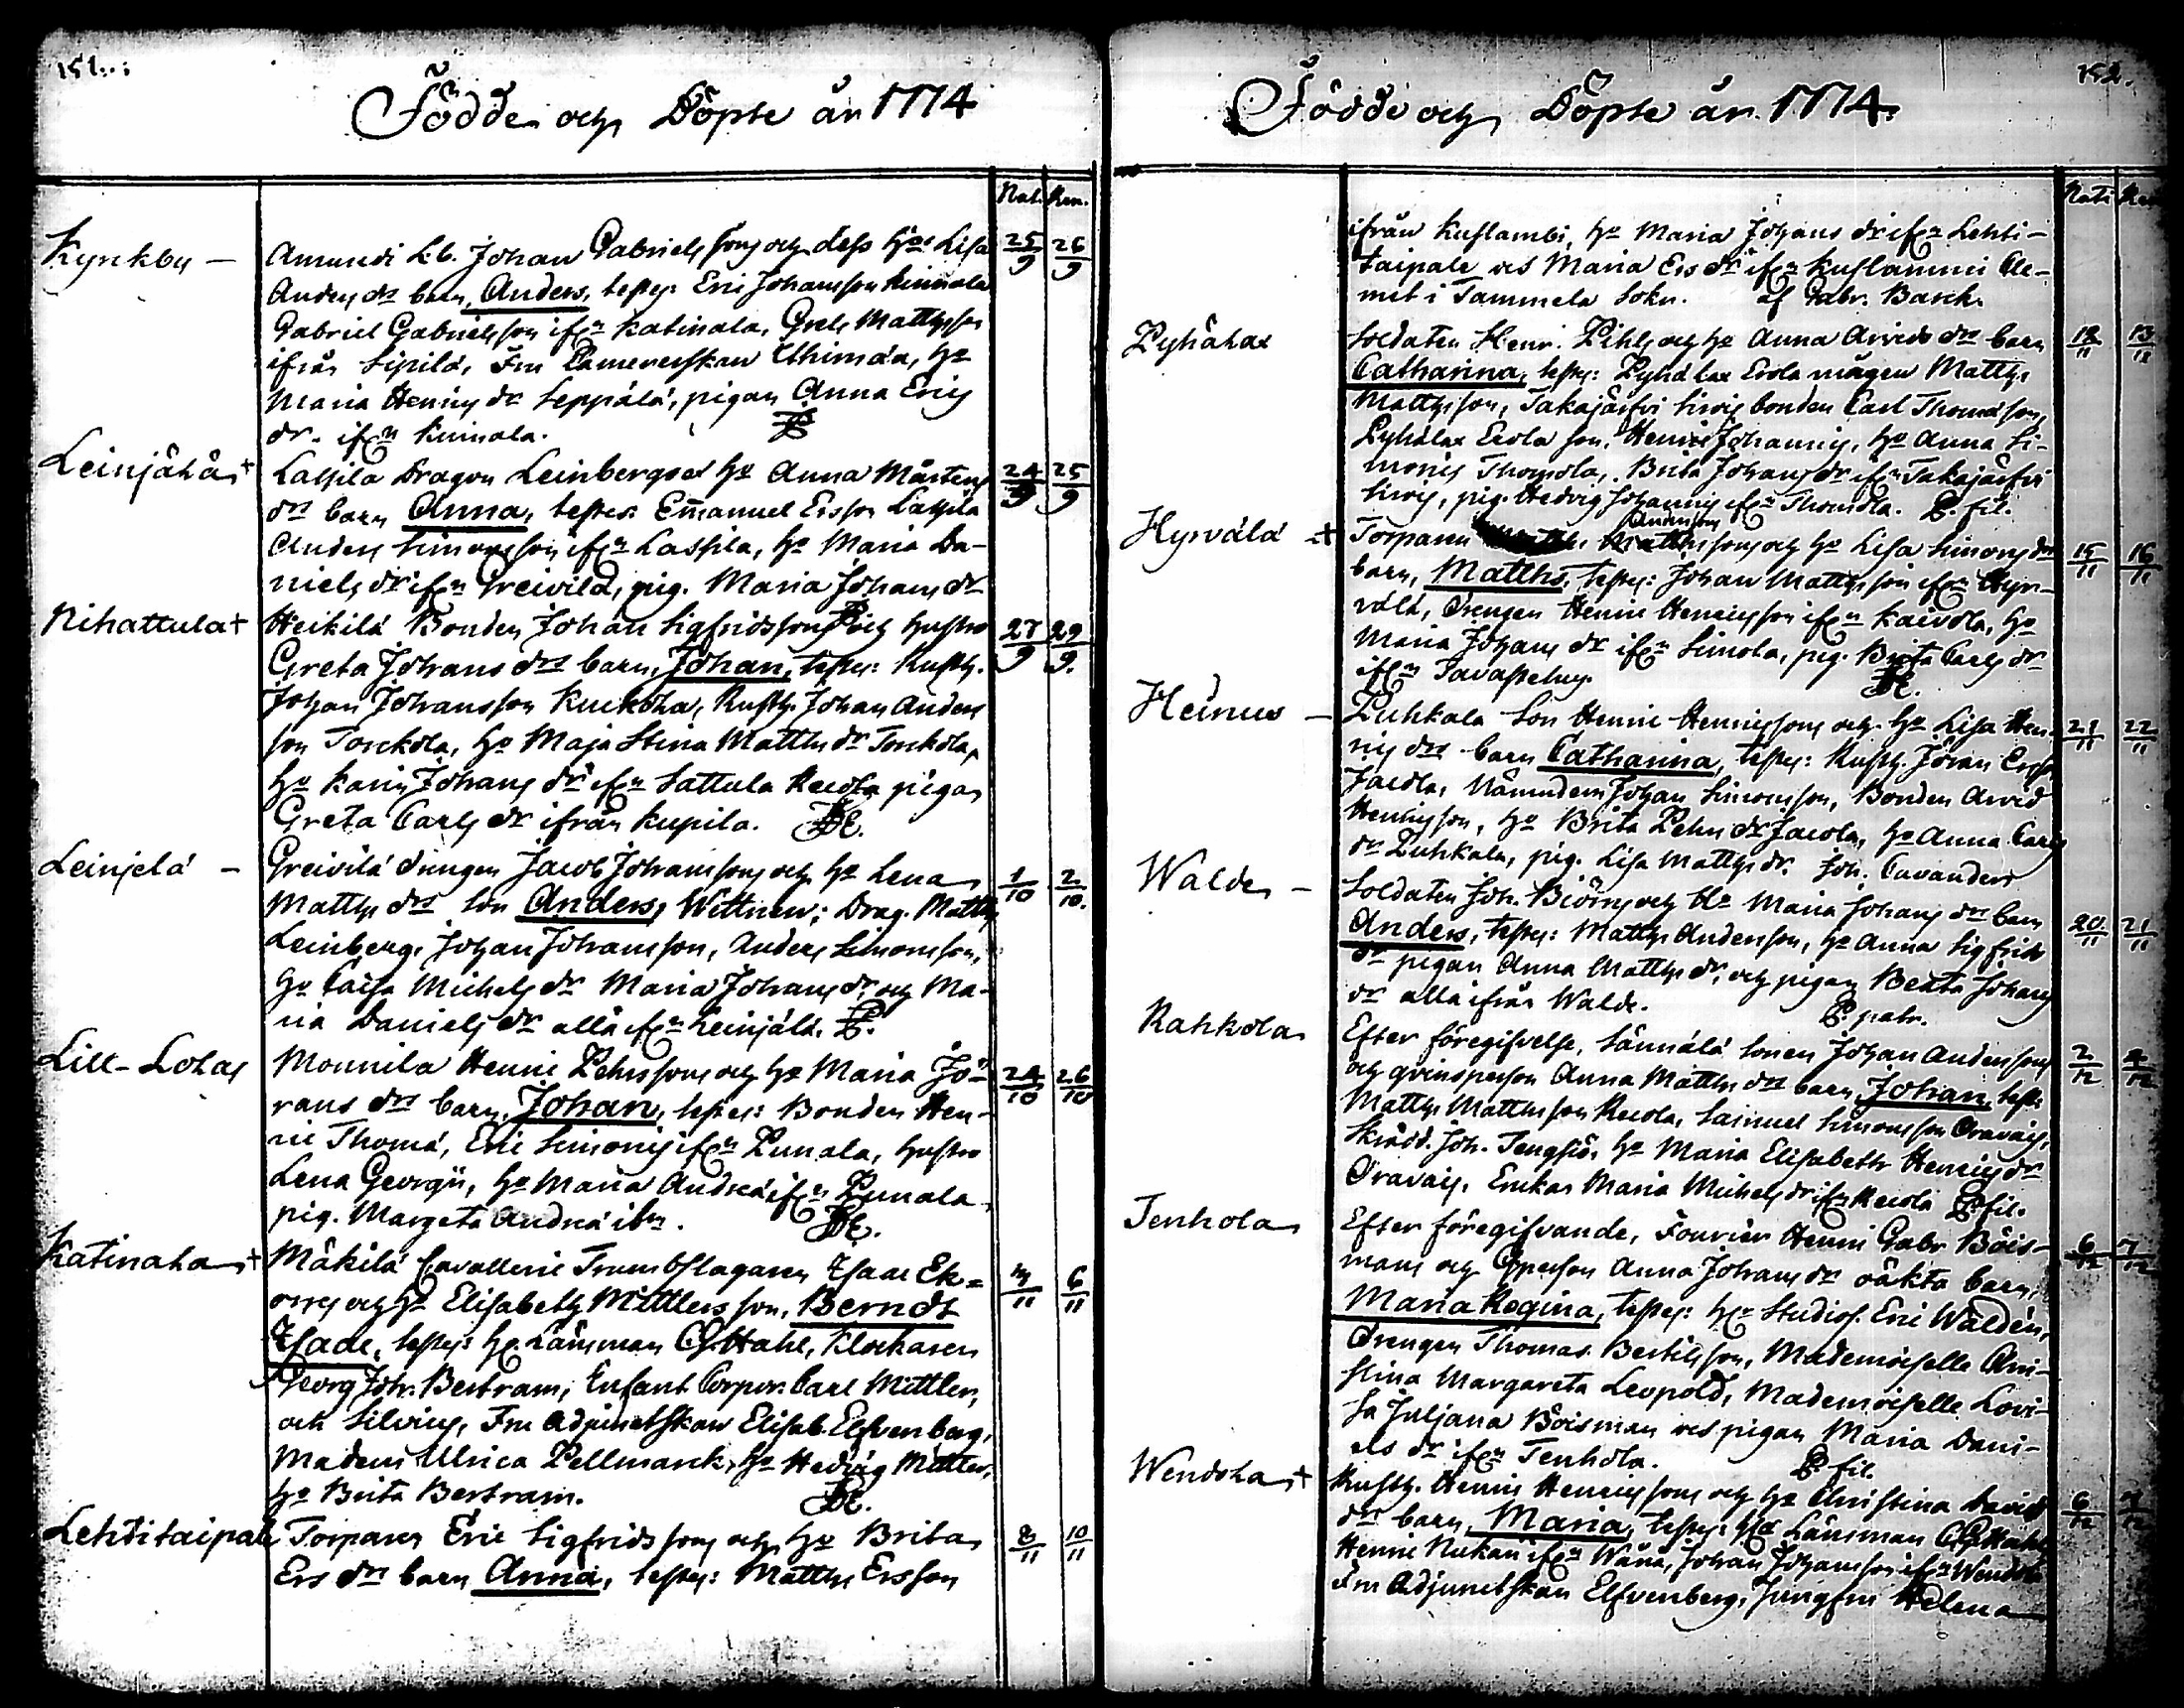 151.
Födde och Döpte år 1774
Nat. Ren.
Kyrckby —
Amundi L.b. Johan Gabrielsson och dess H:s Lisa 25/9 26/9
Anders dr barn, Anders, testes: Eric Johansson Kuinala
Gabriel Gabrielsson ifrn Katinala, Matthsson
ifrån Sipilä, Fru Uhinda, H:o
Maria Henrics dr Seppälä, pigan Anna Erics
dr. ifrn Kuinala.
Leinjälä +
Lassila Dragon Leinbergs och H:o Anna Mårtens 24/9 25/9
drs barn Anna, testes: Emanuel Ersson Lassila
Anders Simonsson ifrn Lassila, H:o Maria Da-
niels dr ifrn Greivilä, pig. Maria Johans dr
Nihattula +
Heikilä Bonden Johan Sigfridssons och hustru 27/9 29/9.
Greta Johans drs barn, Johan, testes: Rusth.
Johan Johansson Kuckola, Rusth. Johan Anders
son Torckola, H:o Maja Stina Matths dr Torckola,
H:o Karin Johans dr ifrn Sattula pigan
Greta Carls dr ifrån Kupila.
Leinjelä —
Greivilä drengen Jacob Johanssons och H:o Lena 1/10 2/10.
Matths drs son Anders, Wittnen; Drag. Matths
Leinberg, Johan Johansson, Anders Simonsson,
H:o Caisa Michels dr Maria Johans dr, och Ma-
ria Daniels dr alla ifrn Leinjälä.
Lill-Lohas
Monnila Henric Pehrssons och H:o Maria Jö- 24/10 26/10
rans drs barn, Johan, testes: Bonden Hen-
ric Thomä, Eric Simonis ifrn Punala, hustru
Lena Georgii, H:o Maria Andreä ifrn Punala
pig. Margeta Andreä ibm.
Katinala +
Mäkilä Cavallerie Trumbslagaren Isaac Ek= 6/11
och H:o Elisabeth Mittlers son, Berndt
Isaac, testes: Hr. Länsman C.G. Hahl, Klockaren
Georg Joh. Bertram, Enfant Corpor. Carl Mittler,
och Silvius, Fru Adjunctskan Elisab. Elfvenberg,
Madem Ulrica Pellmarck, H:o Hedvig Mittler,
H:o Brita Bertram.
Lehditaipale
Torparen Eric Sigfridssons och H:o Brita 8/11 10/11
Ers drs barn Anna, testes: Matths Ersson
152.
Födde och Döpte år 1774.
Nati Ren
ifrån Kuslambi, H:o Maria Johans dr ifrn Lehti-
taipale och Maria Ers dr ifrn Kuslammi
i Tammela Sokn. af Gabr. Barck.
Pyhälax
Soldaten Henr. Pihls och H:o Anna Arvids drs barn 12/11 13/11
Catharina, testes: Pyhälax Erola mågen Matths
Matthsson, Takajärfvi bonden Carl Thomasson,
Pyhälax Erola son, Henric Johannis, H:o Anna Si-
monis Thomola, Brita Johans dr ifrn Takajärfvi
pig. Hedvig Johannis ifrn Thomola. P. fil.
Hyrvälä +
Andersons
Torparen Matthssons och H:o Lisa Simons drs 15/11 16/11
barn, Matths, testes: Johan Matthsson ifrn Hyr-
välä, drengen Henric Henricsson ifrn Kaivola, H:o
Maria Johans dr ifrn Simola, pig. Brita Carls dr
ifrn Tavastehus.
Heinus —
Puhkala Son Henric Henricssons och H:o Lisa Hen- 21/11 22/11
rics drs barn Catharina, testes: Rusth. Jöran Ersson
Jacola, Nämndem Johan Simonsson, Bonden Arvid
Henricsson, H:o Brita Pehrs dr Jacola, H:o Anna Carls
dr Puhkala, pig. Lisa Matths dr. Joh. Cavander
Walde —
Soldaten Joh. Biörns och H:o Maria Johans drs barn 20/11 21/11
Anders, testes: Matths Andersson, H:o Anna Sigfrids
dr pigan Anna Matths dr, och pigan Beata Johans
dr alla ifrån Walde. P. patr.
Rahkola
Efter föregifvelse, Sännälä Sonen Johan Anderssons 2/12 4/12
och qvinsperson Anna Matths drs barn Johan, test:
Matths Matthsson Samuel Simonsson Oravais,
Skrädd. Joh. H:o Maria Elisabeth Henrics dr
Oravais, Enckan Maria Michels dr ifrn P. fil.
Tenhola
Efter föregifvande, Fourier Henric Gabr. Böis- 6/12 7/12
mans och Qperson Anna Johans drs oäkta barn,
Maria Regina, testes: Hr Studios. Eric Walden,
Drengen Thomas Bertilsson, Mademoiselle Chri-
stina Margareta Leopold, Mademoiselle Lovi-
sa Juljana Böisman och pigan Maria Dani-
els dr ifrn Tenhola. P. fil.
Wendola +
Rusth. Henric Henricssons och H:o Christina Davids 6/12 7/12
drs barn, Maria, testes: Hr Länsman C.G. Hahl
Henric Nukari ifrn Wäna, Johan Johansson ifrn Wendola
Fru Adjunctskan Elfvenberg, Jungfru Helena